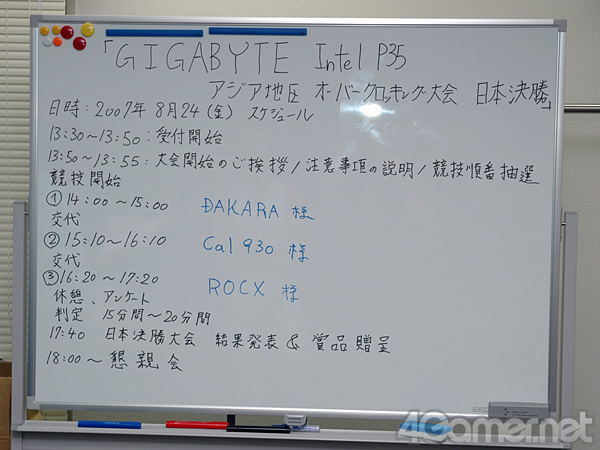 「GIGABYTE Intel P35
アジア地区 オーバークロッキング・大会 日本決勝」
日時:2007年 8月24(金) スケジュール
13:30〜13:50:受付開始
13:50〜13:55:大会開始のご挨拶/注意事項の説明/競技順番抽選
競技開始
①14:00〜15:00 ĐAKARA 様
交代
②15:10〜16:10 Cal 930 様
交代
③16:20〜17:20 ROCX 様
休憩、アンケート
判定 15分間〜20分間
17:40 日本決勝大会 結果発表& 賞品贈呈
18:00〜 懇親会
4Gamer.net